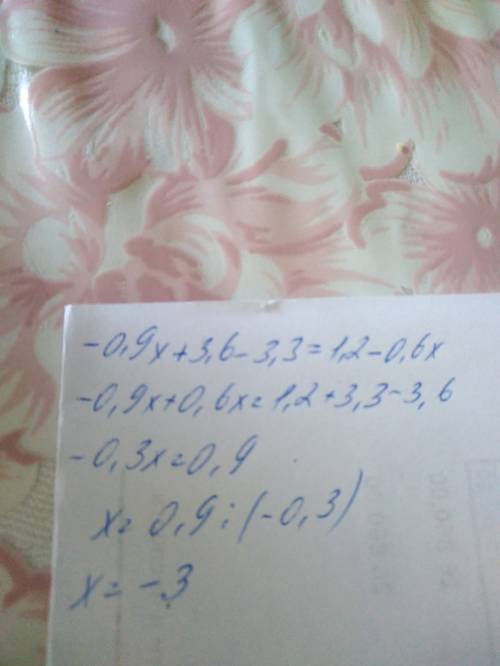 -0,9x+3,6-3,3=1,2-0,6x
-0,9x+0,6x=1,2+3,3-3,6
-0,3x=0,9
x=0,9:(-0,3)
x=-3